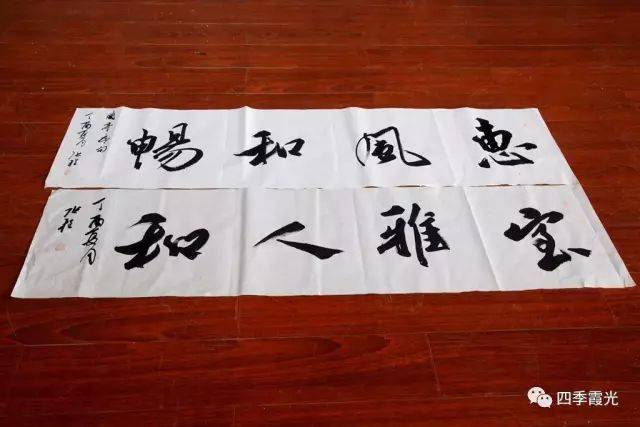 惠風和暢
丁酉夏月
室雅人和
丁酉夏月
四季霞光